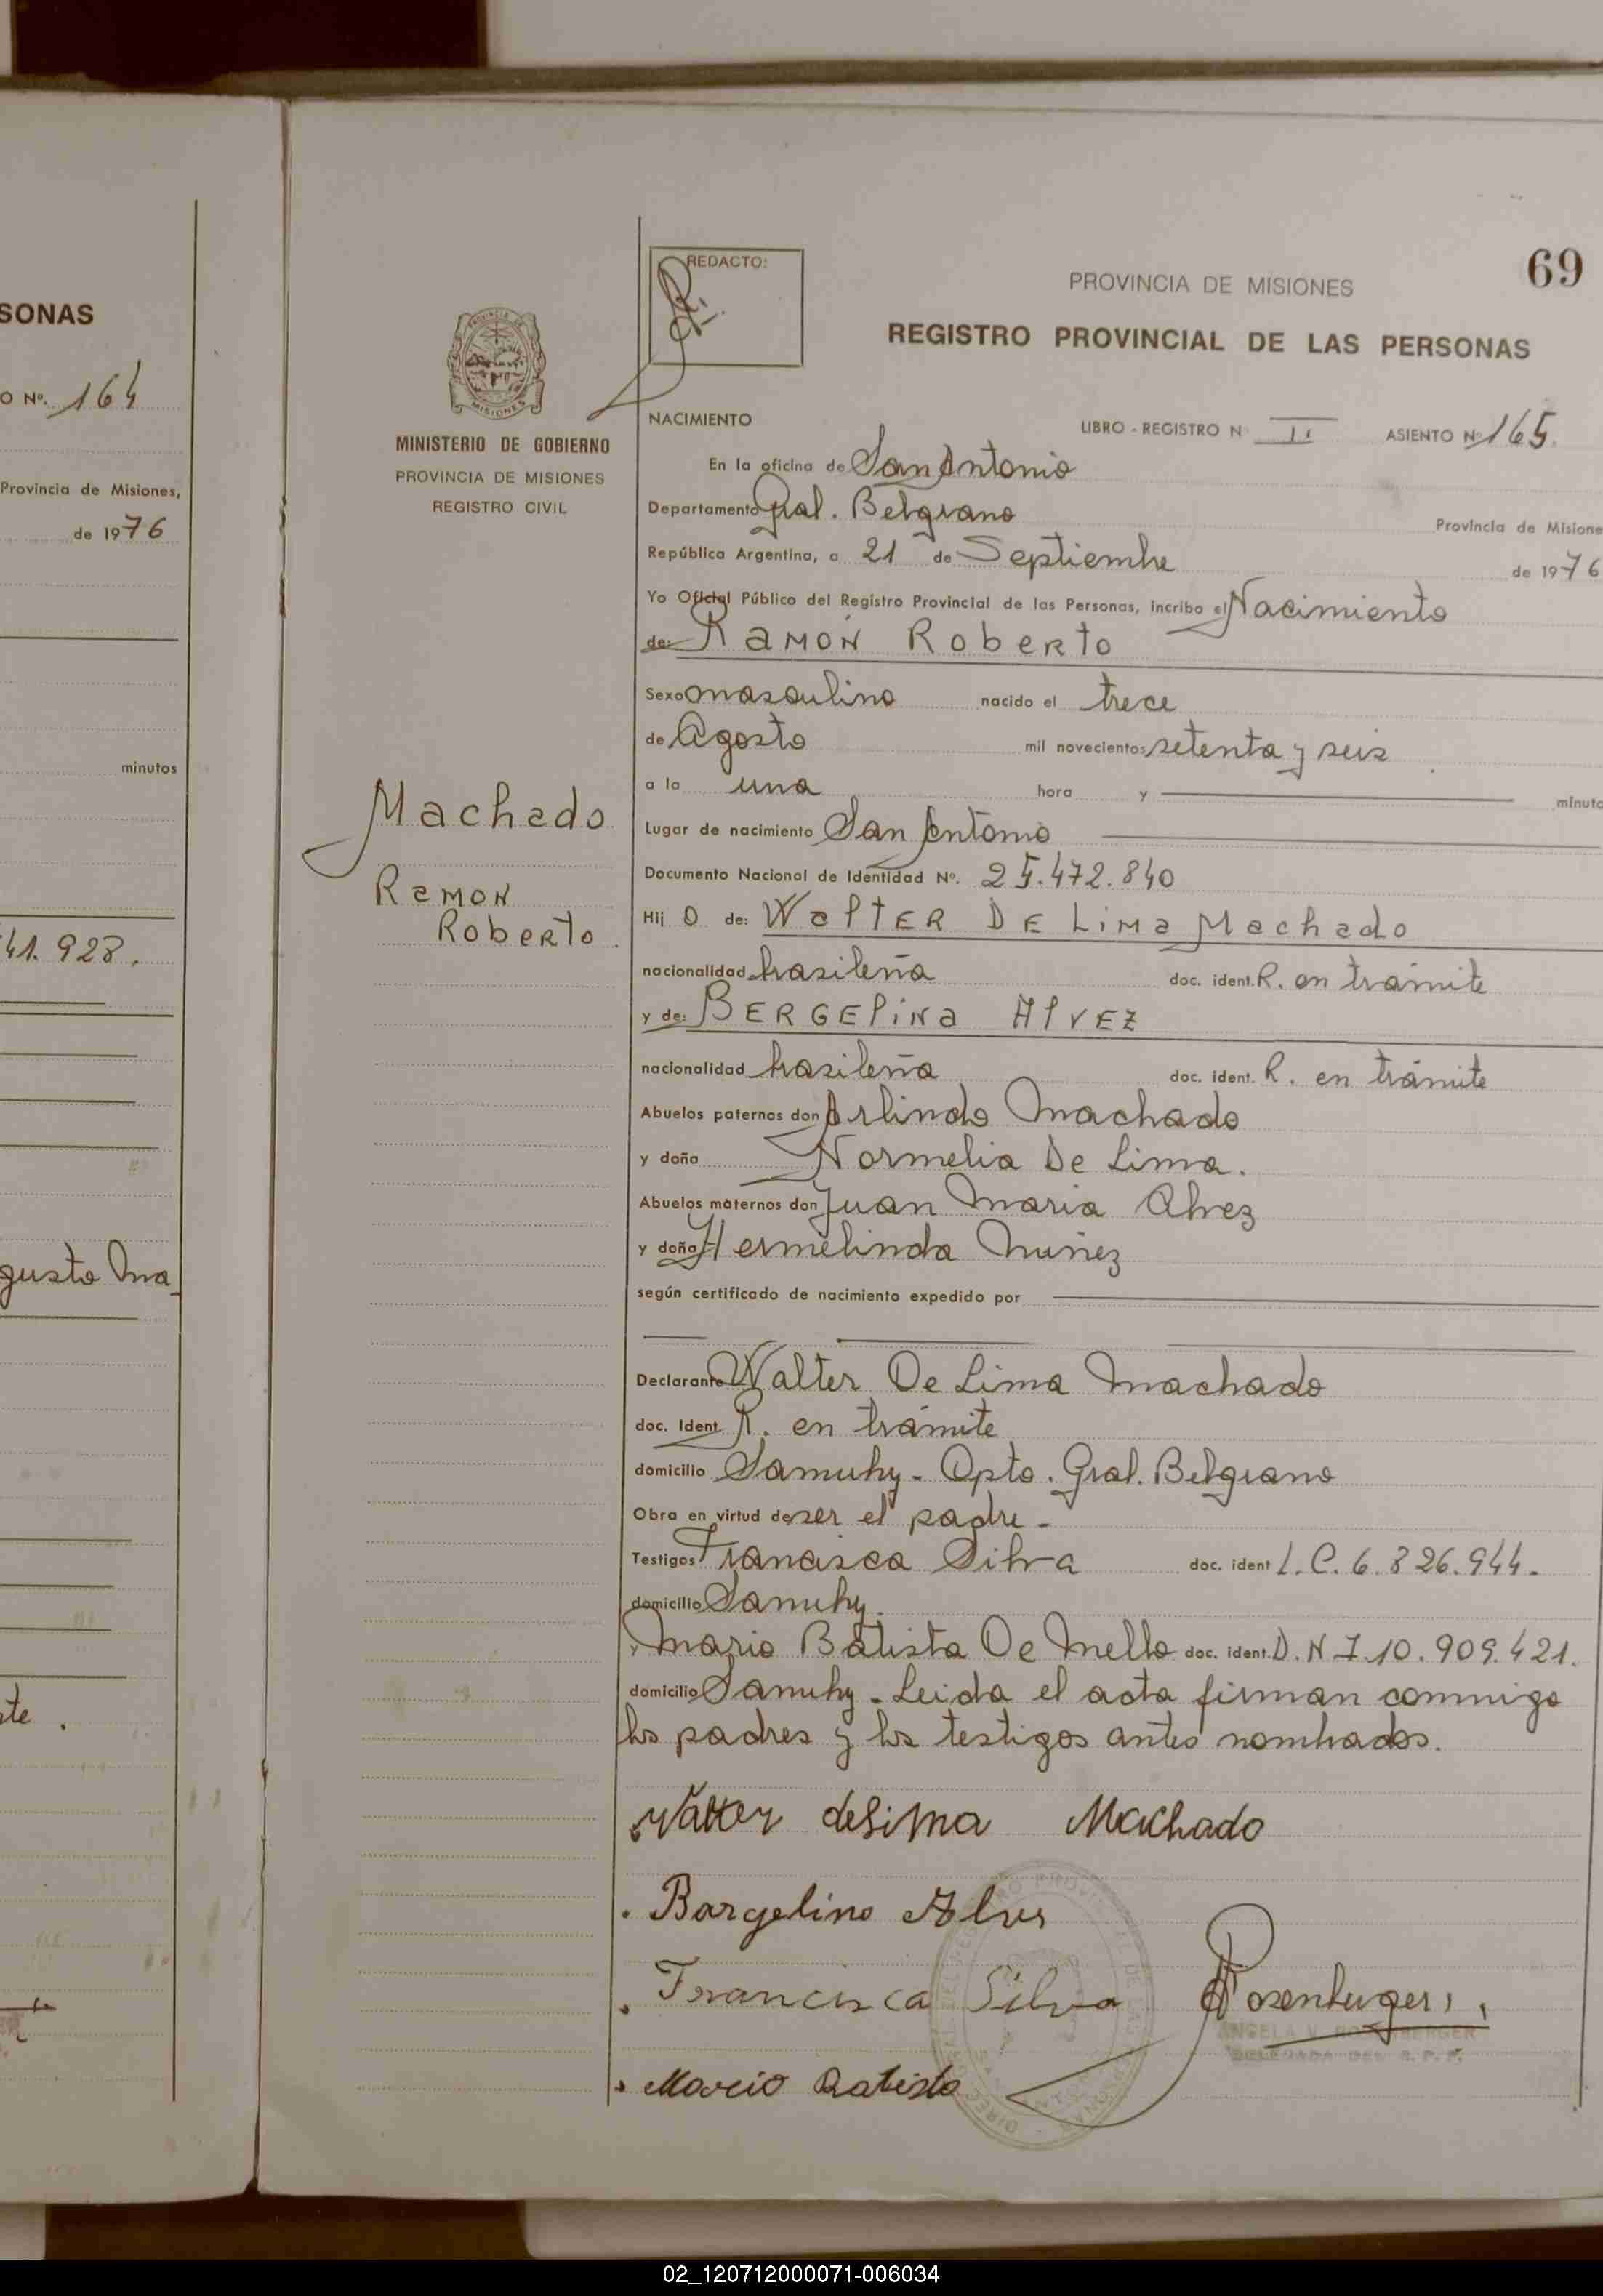 SONAS
O Nº. 164
Provincia de Misiones,
de 1976
minutos
41.928.
gusto Ma_
te.
69
REDACTO:
PROVINCIA DE MISIONES
REGISTRO PROVINCIAL DE LAS PERSONAS
MISIONES
MINISTERIO DE GOBIERNO
PROVINCIA DE MISIONES
REGISTRO CIVIL
NACIMIENTO LIBRO - REGISTRO N II ASIENTO Nº 165.
En la oficina de San Antonio
Departamento Gral. Belgrano Provincia de Misione
República Argentina, a 21 de Septiembre de 1976
Yo Oficial Público del Registro Provincial de las Personas, incribo el Nacimiento
de: Ramón Roberto
Sexo masculino nacido el trece
de Agosto mil novecientos setenta y seis
a la una hora y minuto
Machado
Ramon
Roberto.
Lugar de nacimiento San Antonio
Documento Nacional de Identidad Nº. 25.472.840
Hij o de: Walter De Lima Machado
nacionalidad brasileña doc. ident. R. en trámite
y de: Bergelina Alvez
nacionalidad brasileña doc. ident. R. en trámite
Abuelos paternos don Arlindo Machado
y doña Normelia De Lima.
Abuelos maternos don Juan Maria Alvez
y doña Hermelinda Nuñez
según certificado de nacimiento expedido por
Declarante Walter De Lima Machado
doc. Ident. R. en trámite
domicilio Samuhy - Dpto. Gral. Belgrano
Obra en virtud de ser el padre -
Testigos Francisca Silva doc. ident L.C. 6.826.944.
domicilio Samuhy.
y Mario Batista De Mello doc. ident. D.N.I. 10.909.421.
domicilio Samuhy - Leida el acta firman conmigo
los padres y los testigos antes nombrados.
Walter deLima Machado
Bargelino Alves
Francisca Silva Rosenberger
ANGELA V. ROSENBERGER
DELEGADA DEL R.P.P.
Marcio Batista
02_120712000071-006034